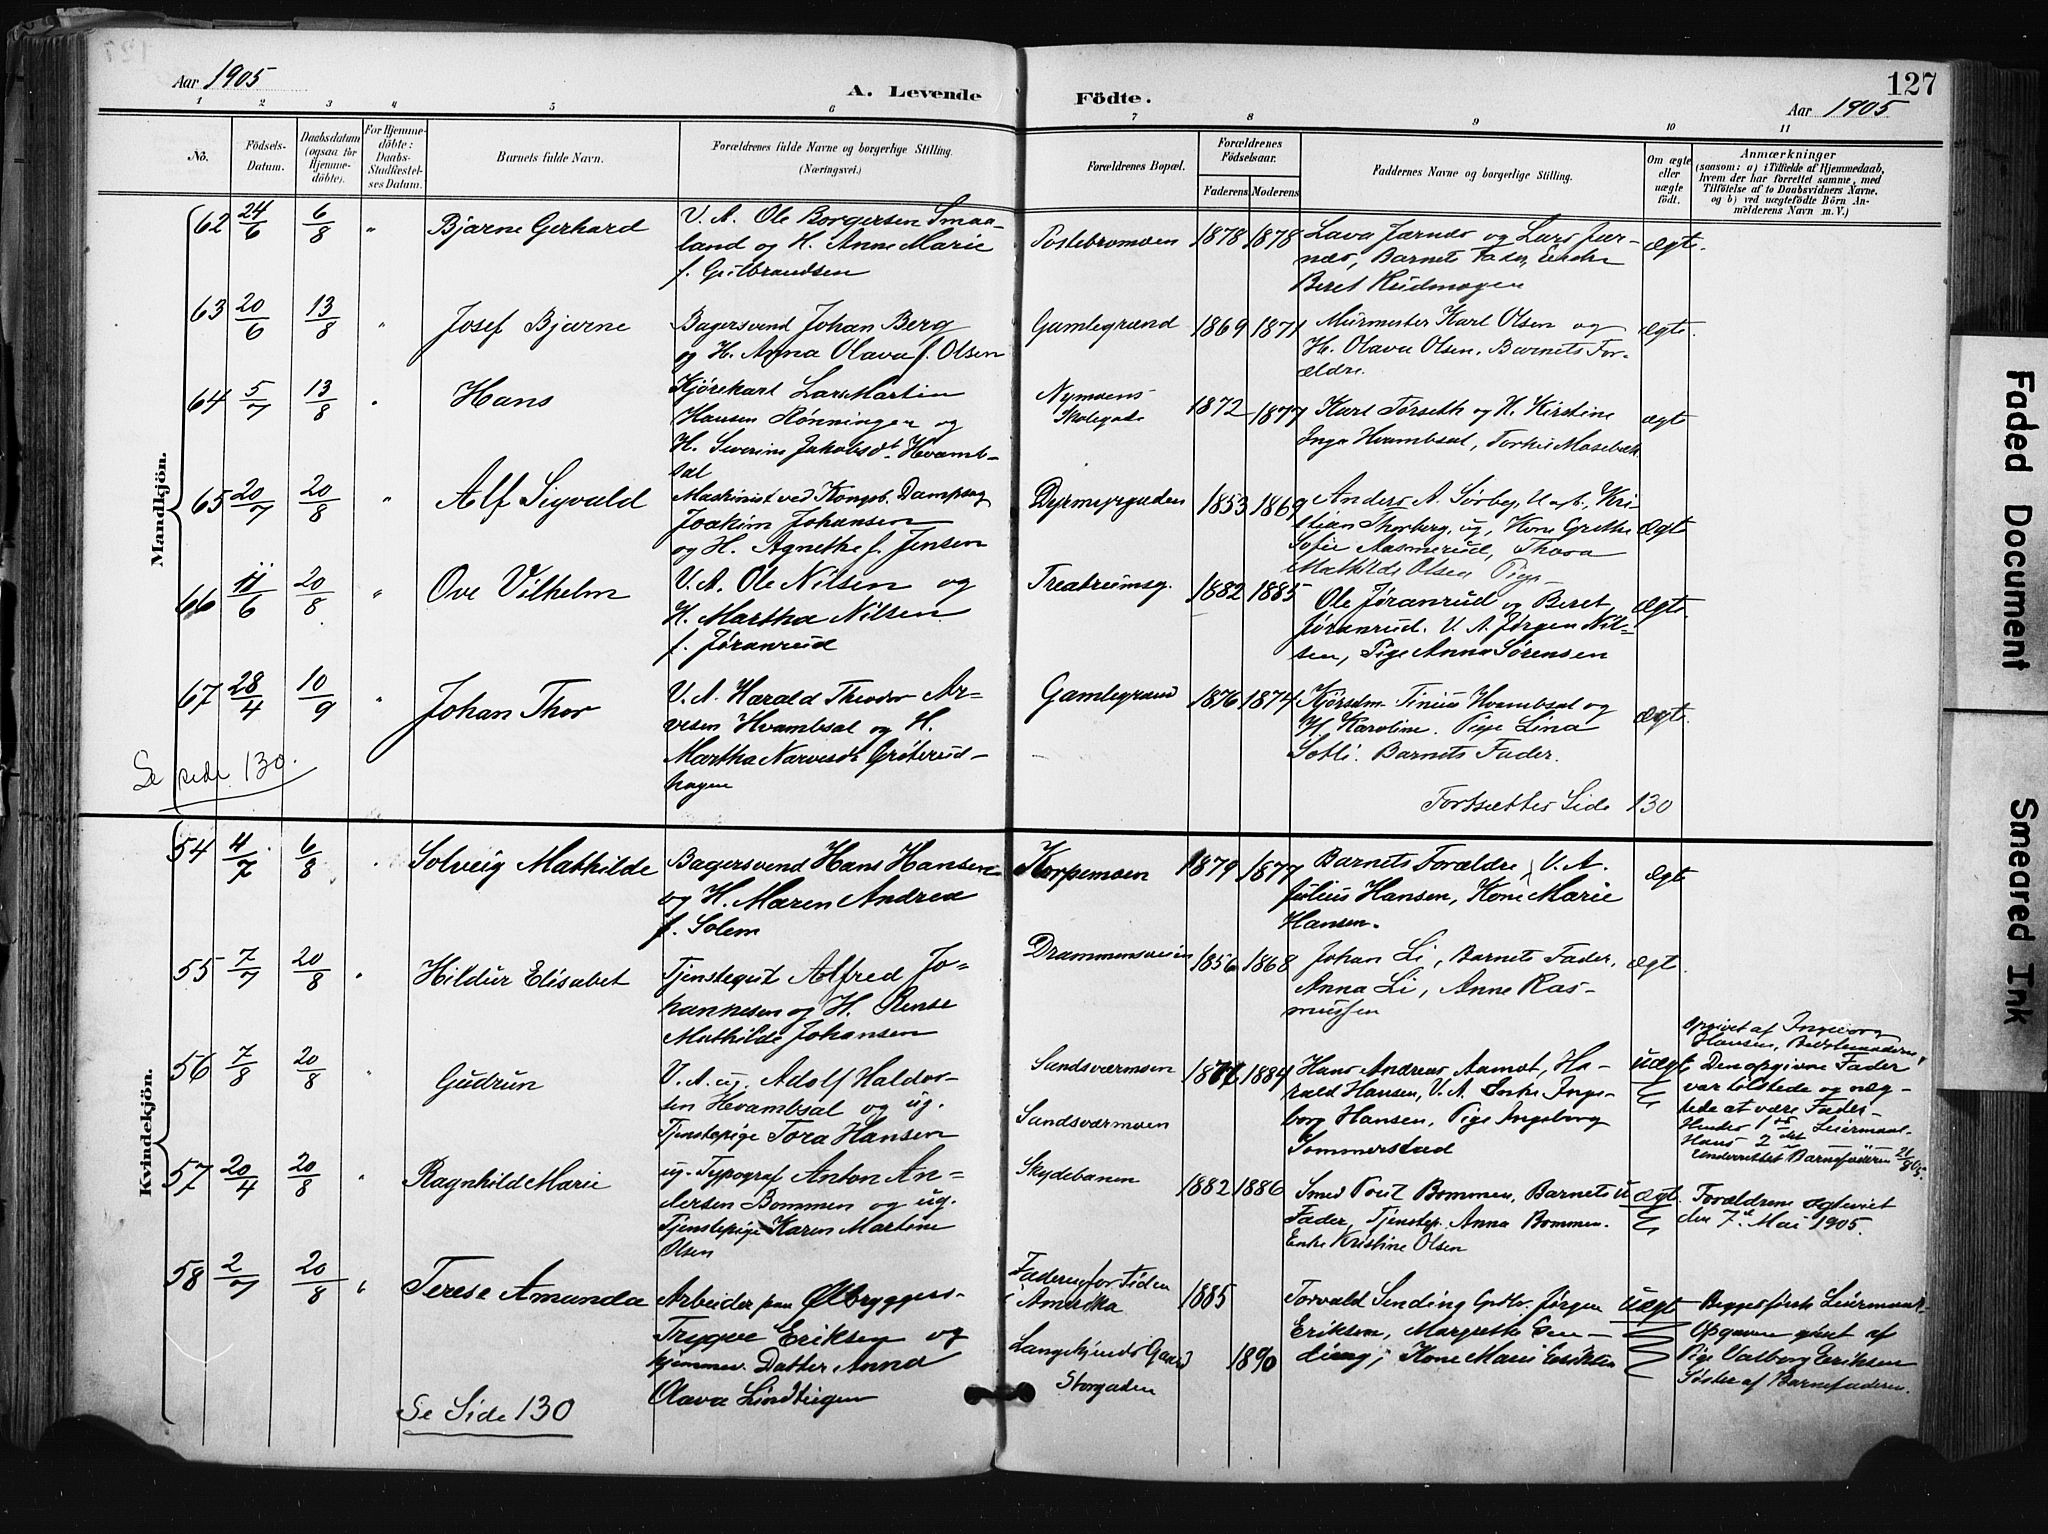 Aar 1905
A. Levende Födte.
127
Aar 1905
1 2 3 4 5 6 7 8 9 10 11
No.
Födsels-
Datum.
Daabsdatum
(ogsaa for
Hjemme-
döbte).
For Hjemme-
döbte:
Daabs-
Stadfæstel-
ses Datum.
Barnets fulde Navn.
Forældrenes fulde Navne og borgerlige Stilling.
(Næringsvei.)
Forældrenes Bopæl.
Forældrenes
Födselsaar.
Faderens. Moderens.
Faddernes Navne og borgerlige Stilling.
Om ægte
eller
uægte
födt.
Anmærkninger
(saasom: a) i Tilfælde af Hjemmedaab,
hvem der har forrettet samme, med
Tilföielse af to Daabsvidners Navne,
og b) ved uægtefödte Börn An-
melderens Navn m. V.)
Mandkjön.
62 24/6 6/8 " Bjarne Gerhard
V. A. Ole Borgersen Smaa-
land og H. Anne Marie
f. Gulbrandsen
Postebromoen 1878 1878
Lava Jærnæs og Lars Jær-
næs, Barnets Fader, Enke
Beret Rudmogen
ægte.
63 20/6 13/8 " Josef Bjarne
Bagersvend Johan Berg
og H. Anna Olava f. Olsen
Gamlegrænd 1869 1871
Murmester Karl Olsen og
H. Olava Olsen. Barnets For-
ældre.
ægte.
64 5/7 13/8 " Hans
Kjørekarl Lars Martin
Hansen Rønningen og
H. Severine Jakobsdt. Hvamb-
sal
Nymoens
Skolegade 1872 1877
Karl Torseth og H. Kirstine
Inga Hvambsal, Torkil Mosebæk
ægte
65 20/7 20/8 " Alf Sigvald
Maskinist ved Kongsb. Dampsag
Joakim Johansen
og H. Agnethe f. Jensen
Dyrmyrgaden 1853 1869
Anders A. Sørby, U. a. b., Kri-
stian Thorberg, ug, Kone Grethe
Sofie Aasmerud, Thora
Mathilde Olsen Pige
ægte
66 11/6 20/8 " Ove Vilhelm
V. A. Ole Nilsen og
H. Martha Nilsen
f. Jøranrud
Treabreumsg. 1882 1885
Ole Jøranrud og Beret
Jøranrud. V. A. Jørgen Nil-
sen, Pige Anna Sørensen
ægte
67 28/4 10/9 " Johan Thor
V. A. Harald Theodor Ar-
vesen Hvambsal og H.
Martha Narvesdt. Grøterud-
hagen
Gamlegrænd 1876 1874
Kjørsdm. Tinius Hvambsal og
H. Karoline. Pige Lina
Sotli. Barnets Fader.
ægte.
Se side 130.
Fortsættes Side 130
Kvindekjön.
54 4/7 6/8 " Solveig Mathilde
Bagersvend Hans Hansen
og H. Maren Andrea
f. Solem
Korpemoen 1879 1877
Barnets Forældre, V. A.
Julius Hansen, Kone Marie
Hansen.
ægte
55 7/7 20/8 " Hildur Elisabet
Tjenstegut Alfred Jo-
hannesen og H. Rense
Mathilde Johansen
Drammensveien 1856 1868
Johan Li, Barnets Fader,
Anna Li, Anne Ras-
mussen
ægte.
56 7/8 20/8 " Gudrun
V. A. ug. Adolf Haldor-
sen Hvambsal og ug.
Tjenstepige Tora Hansen
Sandsværmoen
Sandsværmoen
1884
Hans Andreas Aamot, Ha-
rald Hansen, V. A. Enke Inge-
borg Hansen, Pige Ingeborg
Sommerstad
uægte
Opgivet af Ingeborg
Hansen, Bedstemoderen,
Den opgivne Fader
var tilstede og næg-
tede at være Fader-
Hendes 1ste Leiermaal-
Hans 2det
Underrettet Barnefaderen 21/8 05.
57 20/4 20/8 " Ragnhild Marie
ug. Typograf Anton An-
dersen Bommen og ug.
Tjenstepige Karen Martine
Olsen
Skydebanen 1882 1886
Smed Poul Bommen, Barnets
Fader, Tjenstep. Anna Bommen.
Enke Kristine Olsen
uægte
Forældrene ægteviet
den 7de Mai 1905.
58 2/7 20/8 " Terese Amunda
Arbeider paa Ølbryggeri
Trygve Eriksen og
hjemmev. Datter Anna
Olava Lindteigen
Faderen for Tiden
i Amerika 1885
Langekjends Gaard
Storgaden 1890
Torvald Sending Grdbr. Jørgen
Eriksen, Margrethe Sen-
ding, Kone Marie Eriksen
uægte
Begges første Leiermaal.
Opgaven gjort af
Pige Valborg Eriksen
Søster af Barnefaderen.
Se Side 130
Faded Document
Smeared Ink